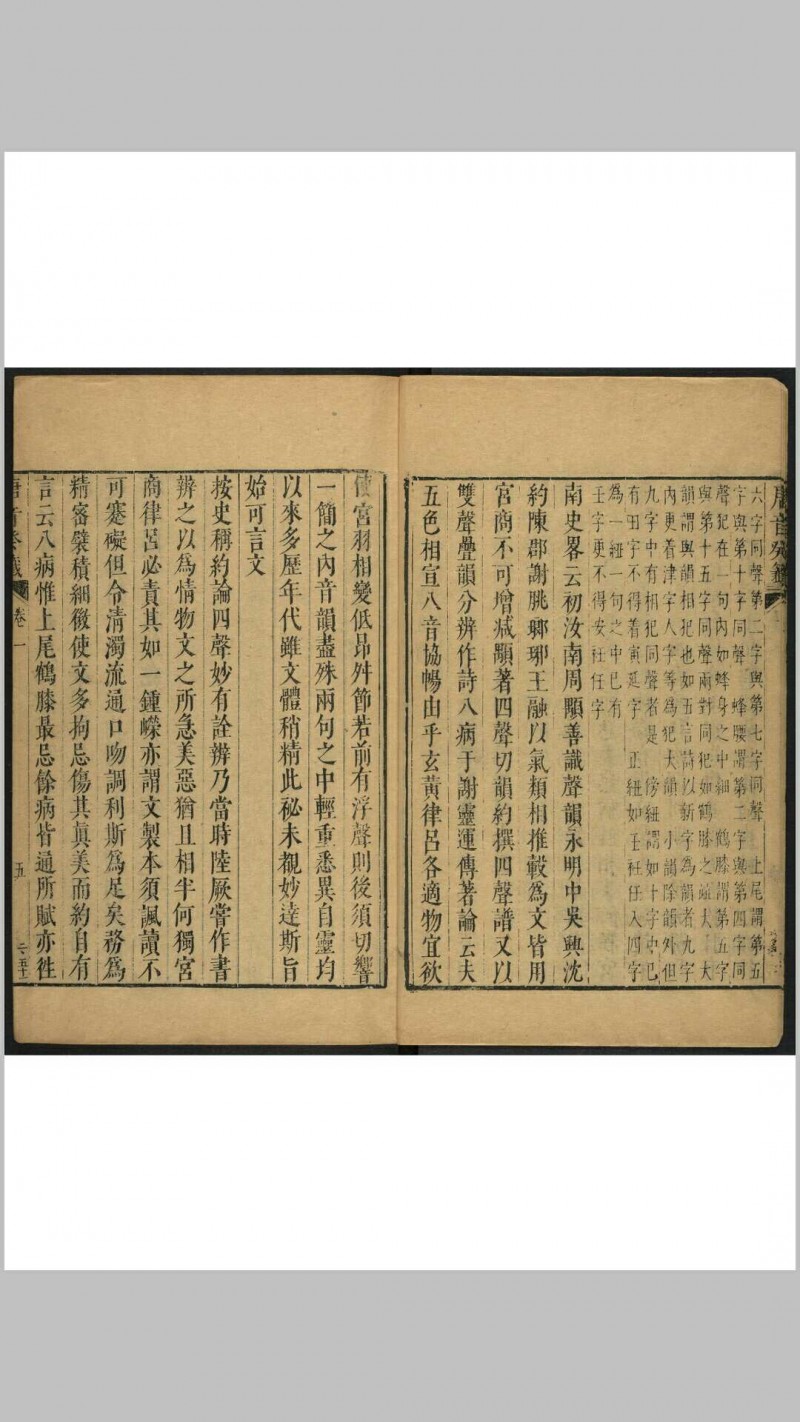 六字同聲第二字與第七字同聲 上尾謂第五
字與第十字同聲 蜂腰謂第二字與第四字同
聲犯在一句內如蜂身之中細 鶴膝謂第五字
與第十五字同聲兩對同犯如鶴膝之 大
韻謂與韻相犯也如五言詩以新字為韻者九字
內更着津字人字等為犯大韻 小韻除韻外但
九字中有相犯同聲者是 傍紐謂如十字中已
有田字不得着寅延字 正紐如壬衽任入四字
為一紐一句之中已有
壬字更不得安衽任字
南史畧云初汝南周顒善識聲韻永明中吳興沈
約陳郡謝脁瑯琊王融以氣類相推轂為文皆用
宮商不可增減顒著四聲切韻約撰四聲譜又以
雙聲疊韻分辨作詩八病于謝靈運傳著論云夫
五色相宣八音協暢由乎玄黃律呂各適物宜欲
使宮羽相變低昂舛節若前有浮聲則後須切響
一簡之內音韻盡殊兩句之中輕重悉異自靈均
以來多歷年代雖文體稍精此秘未覩妙達斯旨
始可言文
按史稱約論四聲妙有詮辨乃當時陸厥嘗作書
辨之以為情物文之所急美惡猶且相半何獨宮
商律呂必責其如一鍾嶸亦謂文製本須諷讀不
可蹇礙但令清濁流通口吻調利斯為足矣務為
精密襞積細微使文多拘忌傷其眞美而約自有
言云八病惟上尾鶴膝最忌餘病皆通所賦亦徃
唐音癸籤 卷一 五